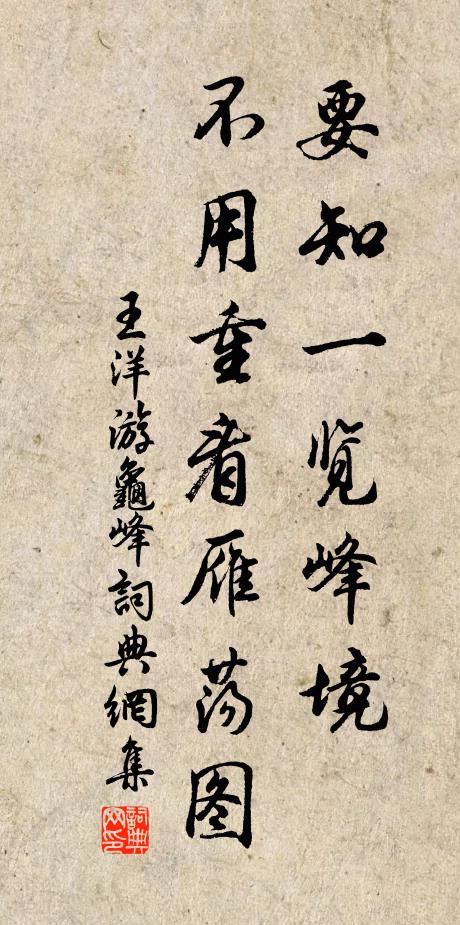 要知一览峰境
不用重看雁荡图
王洋游龜峰詞典網集
詞典网印